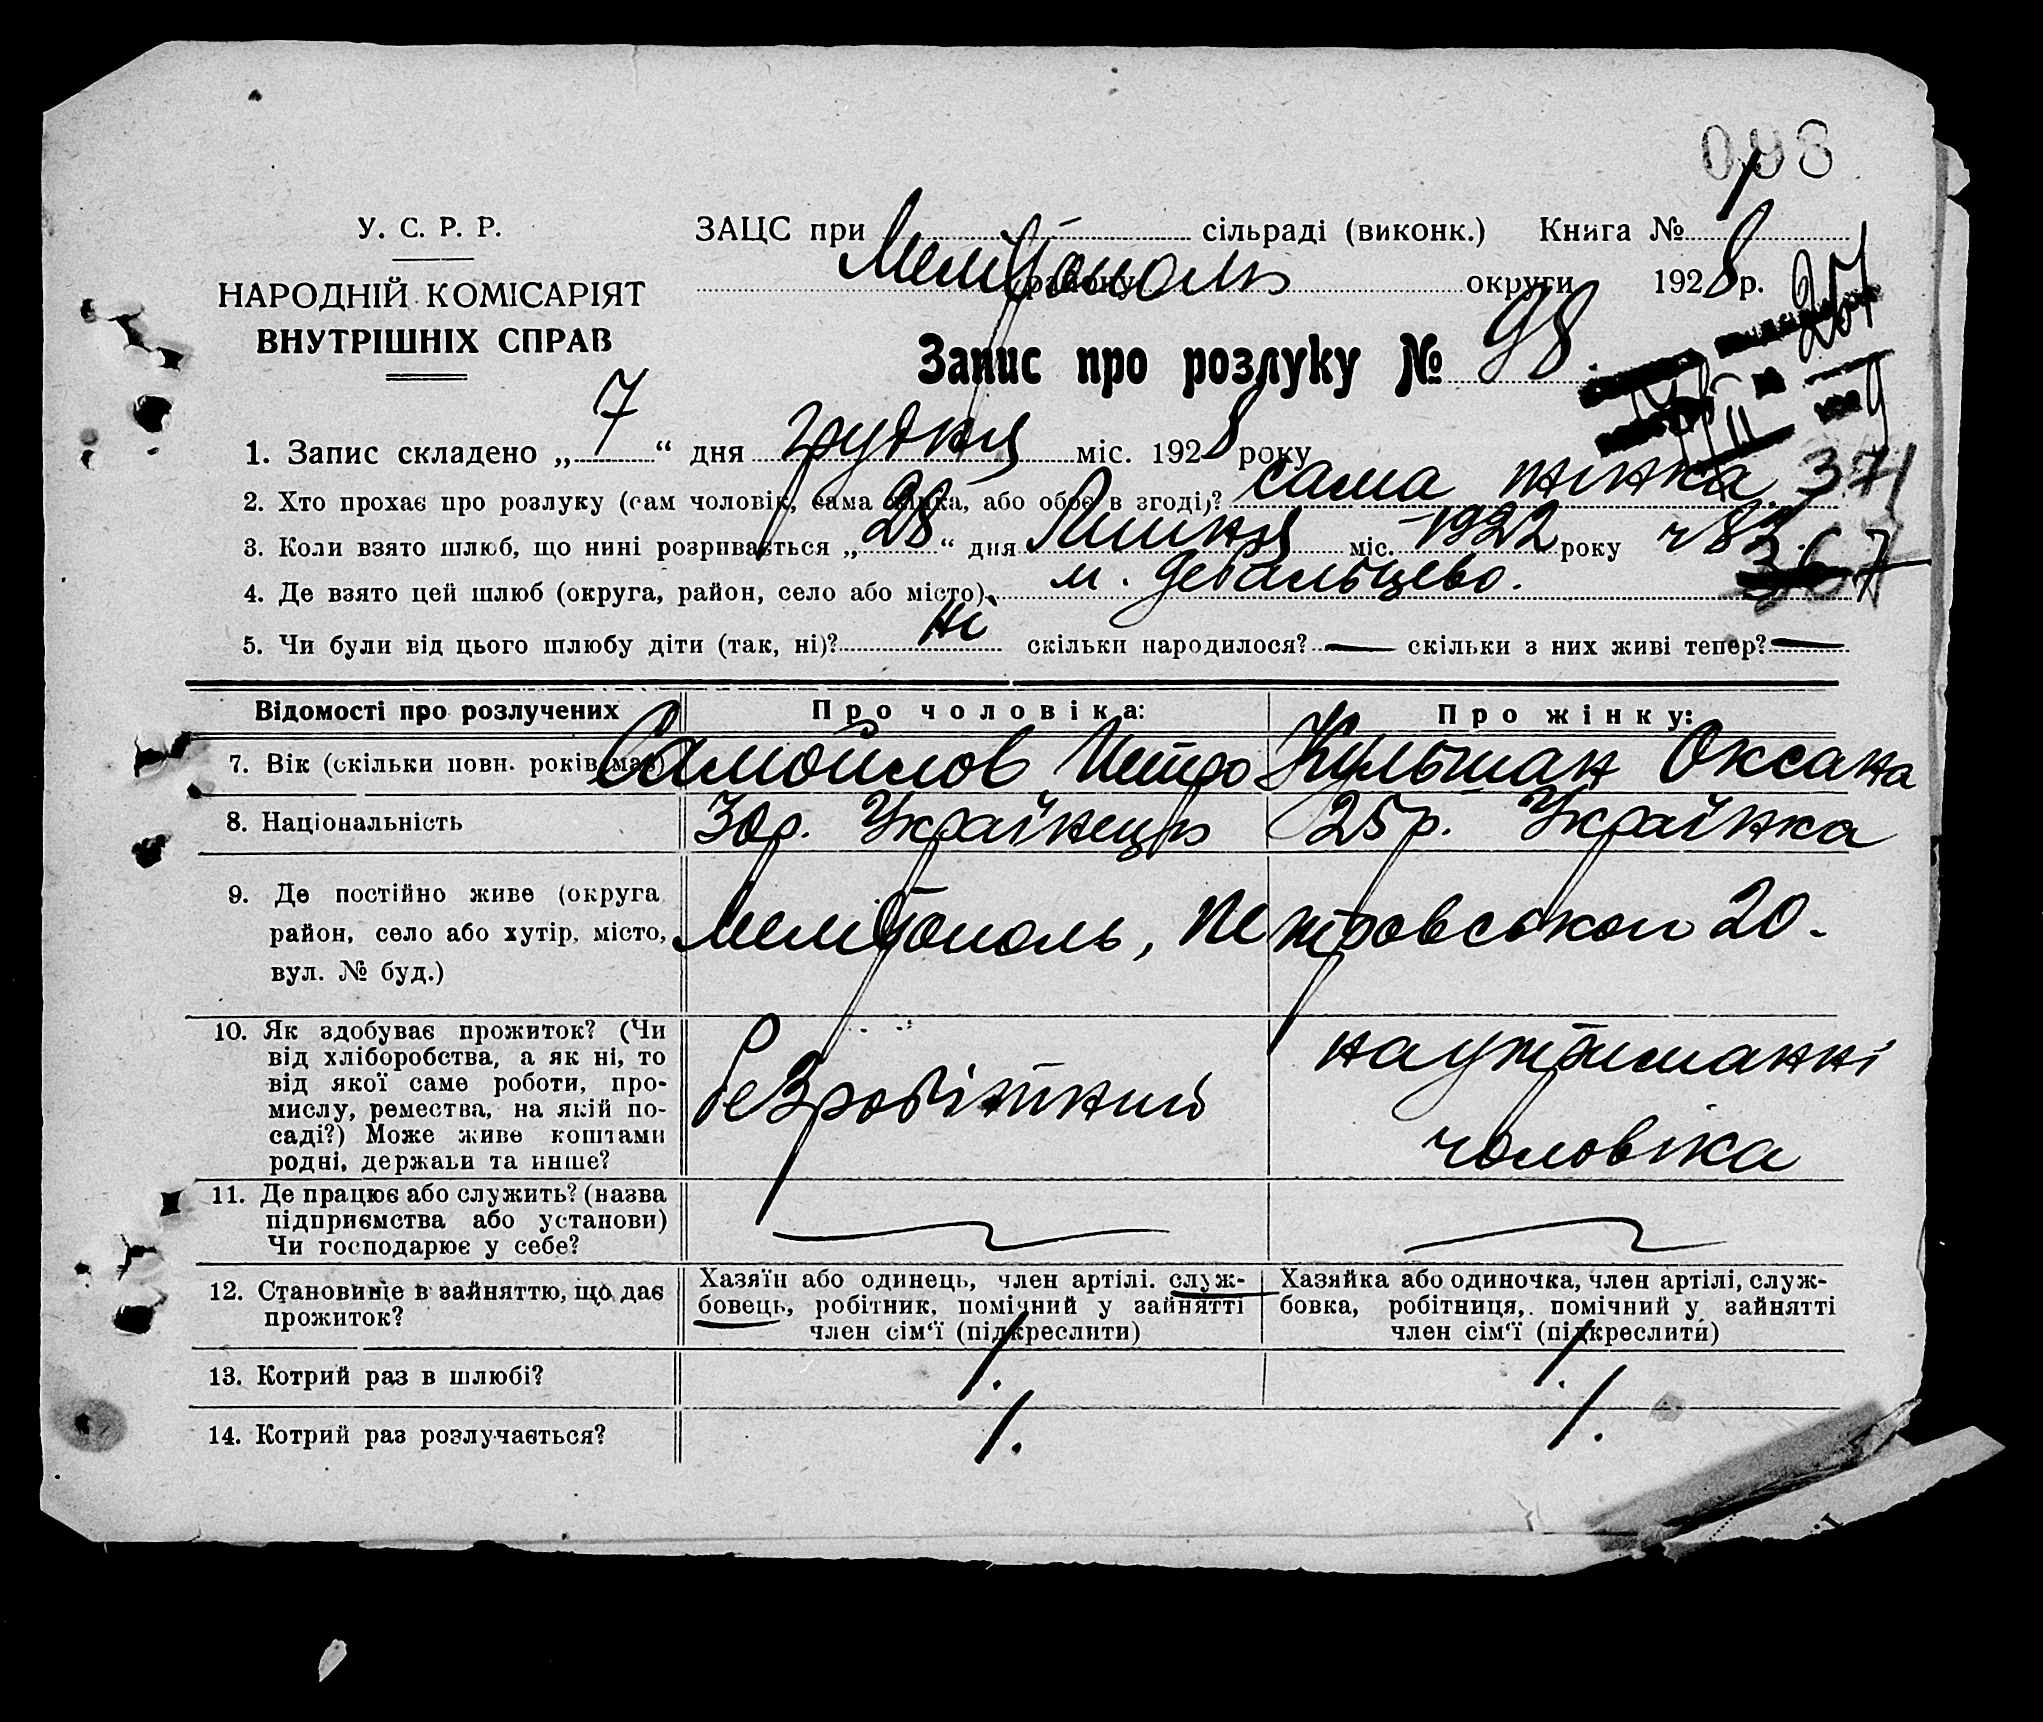 098
У. С. Р. Р.
НАРОДНІЙ КОМІСАРІЯТ
ВНУТРІШНІХ СПРАВ
ЗАЦС при сільраді (виконк.) Книга № 1
Мелітополь району округи 1928 р.
Запис про розлуку № 98.
1. Запис складено „7“ дня грудня міс. 1928 року
2. Хто прохає про розлуку (сам чоловік, сама жінка, або обоє в згоді)? сама жінка. 371
3. Коли взято шлюб, що нині розривається „28“ дня Липня міс. 1922 року ч 82.
4. Де взято цей шлюб (округа, район, село або місто) м. Дебальцево. 367
5. Чи були від цього шлюбу діти (так, ні)? Ні скільки народилося? — скільки з них живі тепер? —
Відомості про розлучених Про чоловіка: Про жінку:
7. Вік (скільки повн. років має) Самойлов Петро Кульман Оксана
8. Національність 30р. Українець 25р. Українка
9. Де постійно живе (округа
район, село або хутір, місто,
вул. № буд.)
Мелітополь, Петровської 20.
10. Як здобуває прожиток? (Чи
від хліборобства, а як ні, то
від якої саме роботи, про-
мислу, ремества, на якій по-
саді?) Може живе коштами
родні, держави та инше?
безробітний
на утриманні
чоловіка
11. Де працює або служить? (назва
підприємства або установи)
Чи господарює у себе?
12. Становище в зайняттю, що дає
прожиток?
Хазяїн або одинець, член артілі, служ-
бовець, робітник, помічний у зайнятті
член сім'ї (підкреслити)
Хазяйка або одиночка, член артілі, служ-
бовка, робітниця, помічний у зайнятті
член сім'ї (підкреслити)
13. Котрий раз в шлюбі? 1. 1.
14. Котрий раз розлучається? 1. 1.